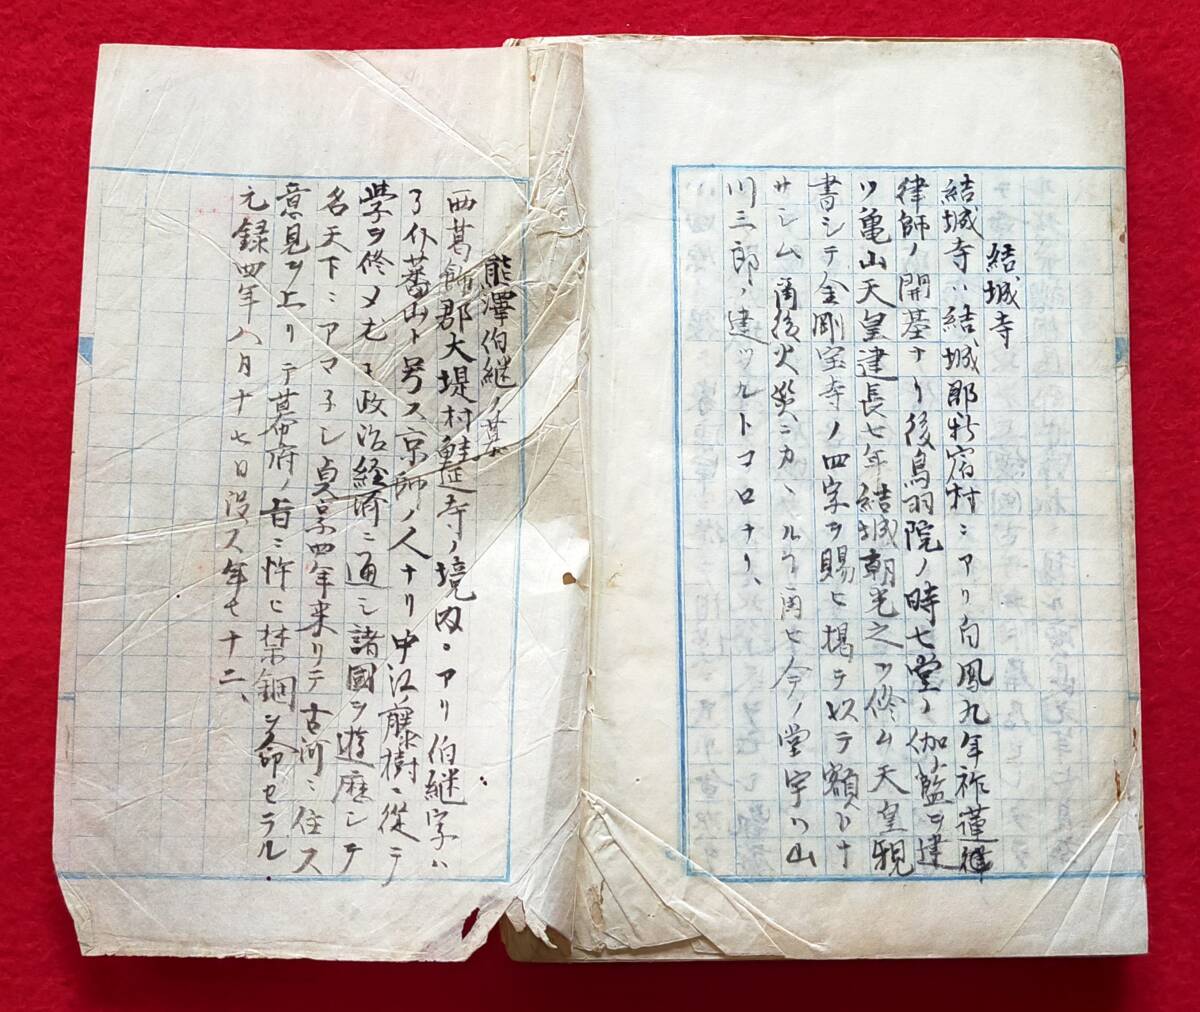 結城寺
結城寺ハ結城郡新宿村ニアリ白鳳九年祚蓮
律師ノ開基ナリ後鳥羽院ノ時七堂ノ伽藍ヲ建
ツ亀山天皇建長七年結城朝光之ヲ修ム天皇親
書シテ金剛宝寺ノ四字ヲ賜ヒ掲テ以テ額トナ
サシム爾後火災ニカヽル今ノ堂宇ハ山
川三郎ノ建ツルトコロナリ、
熊澤伯継ノ墓
西葛飾郡大堤村鮭延寺ノ境内ニアリ伯継字ハ
了介蕃山ト号ス京師ノ人ナリ中江藤樹ニ従テ
学ヲ修メ尤モ政治経済ニ通シ諸國ヲ遊歴シテ
名天下ニアマネシ貞享四年来リテ古河ニ住ス
意見ヲ上リテ幕府ノ旨ニ忤ヒ禁錮ヲ命セラル
元録四年八月十七日没ス年七十二、